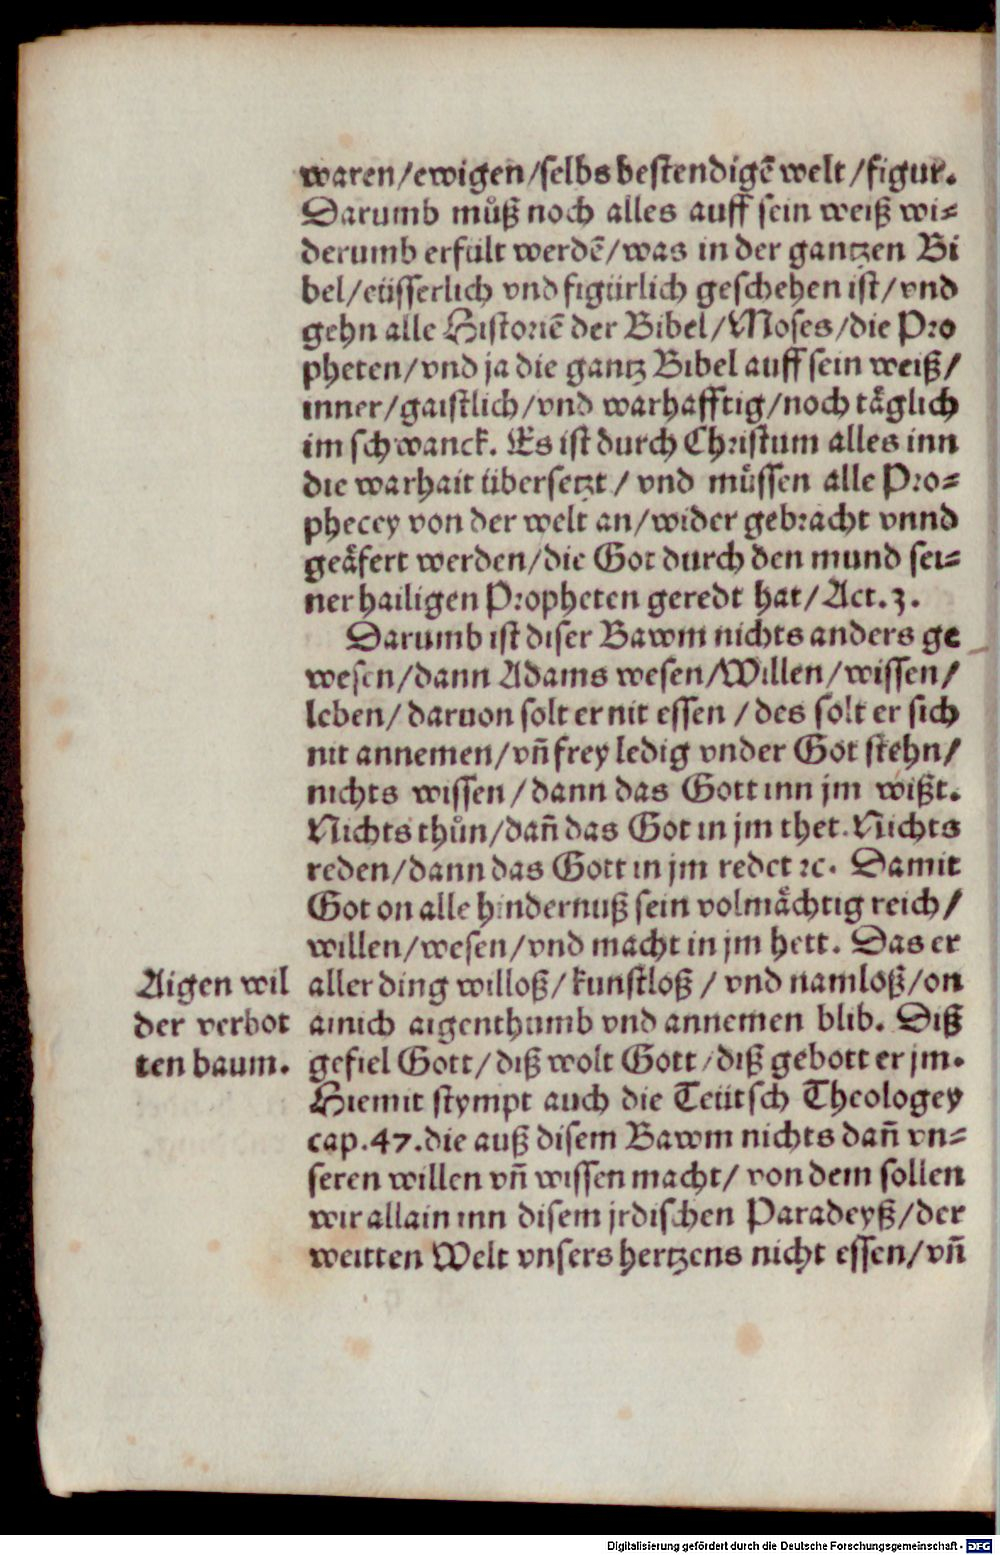 waren/ewigen/selbs bestendigẽ welt/figur.
Darumb můß noch alles auff sein weiß wi⸗
derumb erfült werdẽ/was in der gantzen Bi
bel/eüsserlich vnd figürlich geschehen ist/vnd
gehn alle Historiẽ der Bibel/Moses/die Pro
pheten/vnd ja die gantz Bibel auff sein weiß/
inner/gaistlich/vnd warhafftig/noch täglich
im schwanck. Es ist durch Christum alles inn
die warhait übersetzt/ vnd müssen alle Pro⸗
phecey von der welt an/wider gebracht vnnd
geäfert werden/die Got durch den mund sei⸗
ner hailigen Propheten geredt hat/Act.3.
Darumb ist diser Bawm nichts anders ge
wesen/dann Adams wesen/Willen/wissen/
leben/ daruon solt er nit essen /des solt er sich
nit annemen/vñ frey ledig vnder Got stehn/
nichts wissen/dann das Gott inn jm wißt.
Nichts thůn/dañ das Got in jm thet. Nichts
reden/dann das Gott in jm redet ꝛc. Damit
Got on alle hindernuß sein volmächtig reich/
willen/wesen/vnd macht in jm hett. Das er
aller ding willoß/kunstloß/ vnd namloß/on
ainich aigenthumb vnd annemen blib. Diß
gefiel Gott/diß wolt Gott/diß gebott er jm.
Hiemit stympt auch die Teütsch Theologey
cap.47.die auß disem Bawm nichts dañ vn⸗
seren willen vñ wissen macht/ von dem sollen
wir allain inn disem jrdischen Paradeyß/der
weitten Welt vnsers hertzens nicht essen/vñ
Aigen wil
der verbot
ten baum.
Digitalisierung gefördert durch die Deutsche Forschungsgemeinschaft - DFG